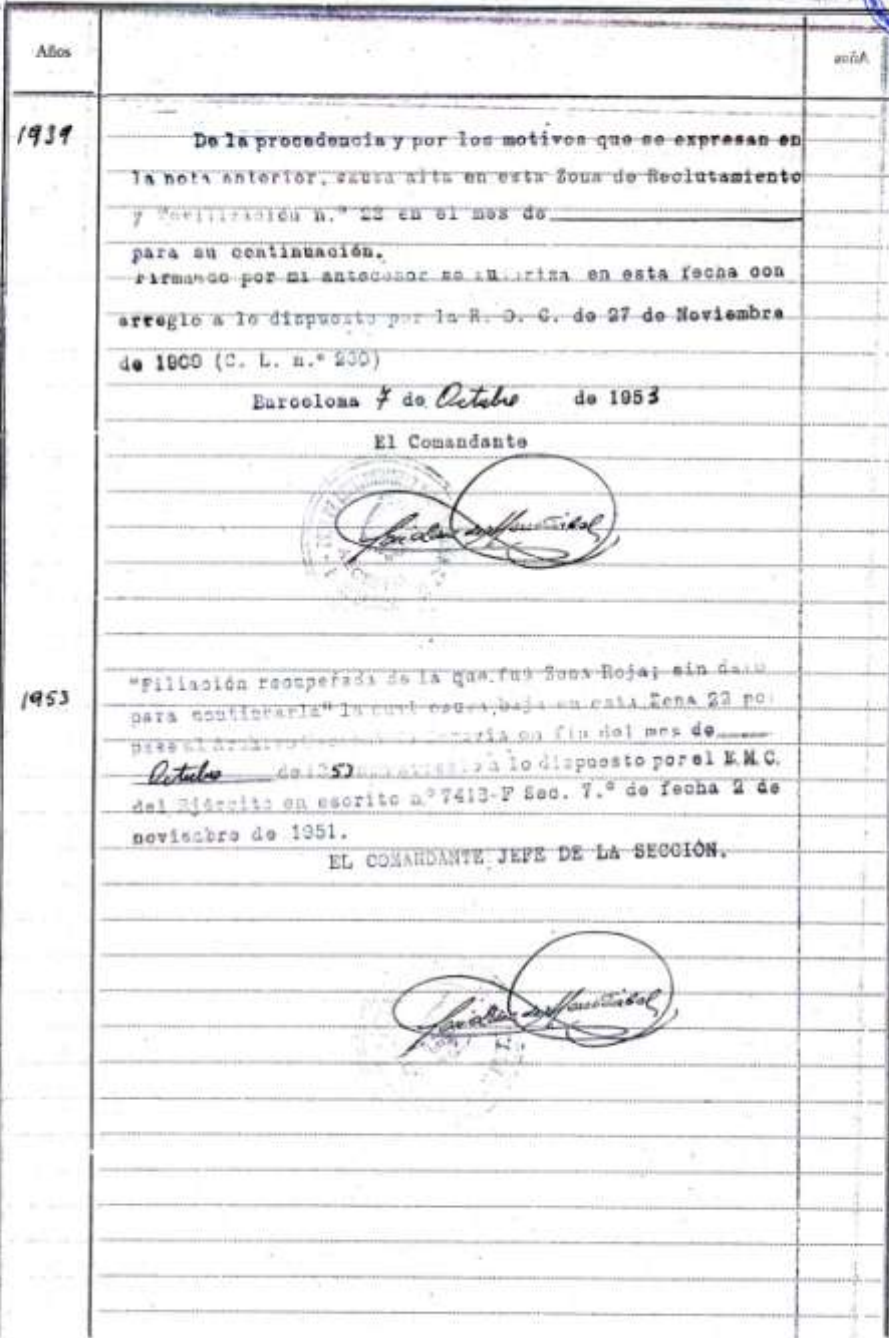 Años
1939
De la procedencia y por los motivos que se expresan en
la nota anterior, causa alta en esta Zona de Reclutamiento
y Movilización n.º 22 en el mes de
para su continuación.
Firmando por mi antecesor se autoriza en esta fecha con
arreglo a lo dispuesto por la R. O. C. de 27 de Noviembre
de 1909 (C. L. n.º 230)
Barcelona 7 de Octubre de 1953
El Comandante
1953
"Filiación recuperada de la que fué Zona Roja; sin datos
para continuarla" la cual causa baja en esta Zona 22 por
pase al Archivo en fin del mes de
Octubre de 1953 a lo dispuesto por el E.M.C.
del Ejército en escrito nº 7413-F Sec. 7.ª de fecha 2 de
noviembre de 1951.
EL COMANDANTE JEFE DE LA SECCIÓN.